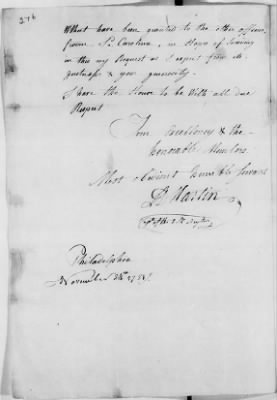 276
What have been granted to the other officers
from So. Carolina, in Hopes of
in this my Request as I expect from
& your generosity.
I have the Honor to be With all due
Respect
Your Excellency & the
honorable Members
Most obedient humble Servant
Martin
Philadelphia
November